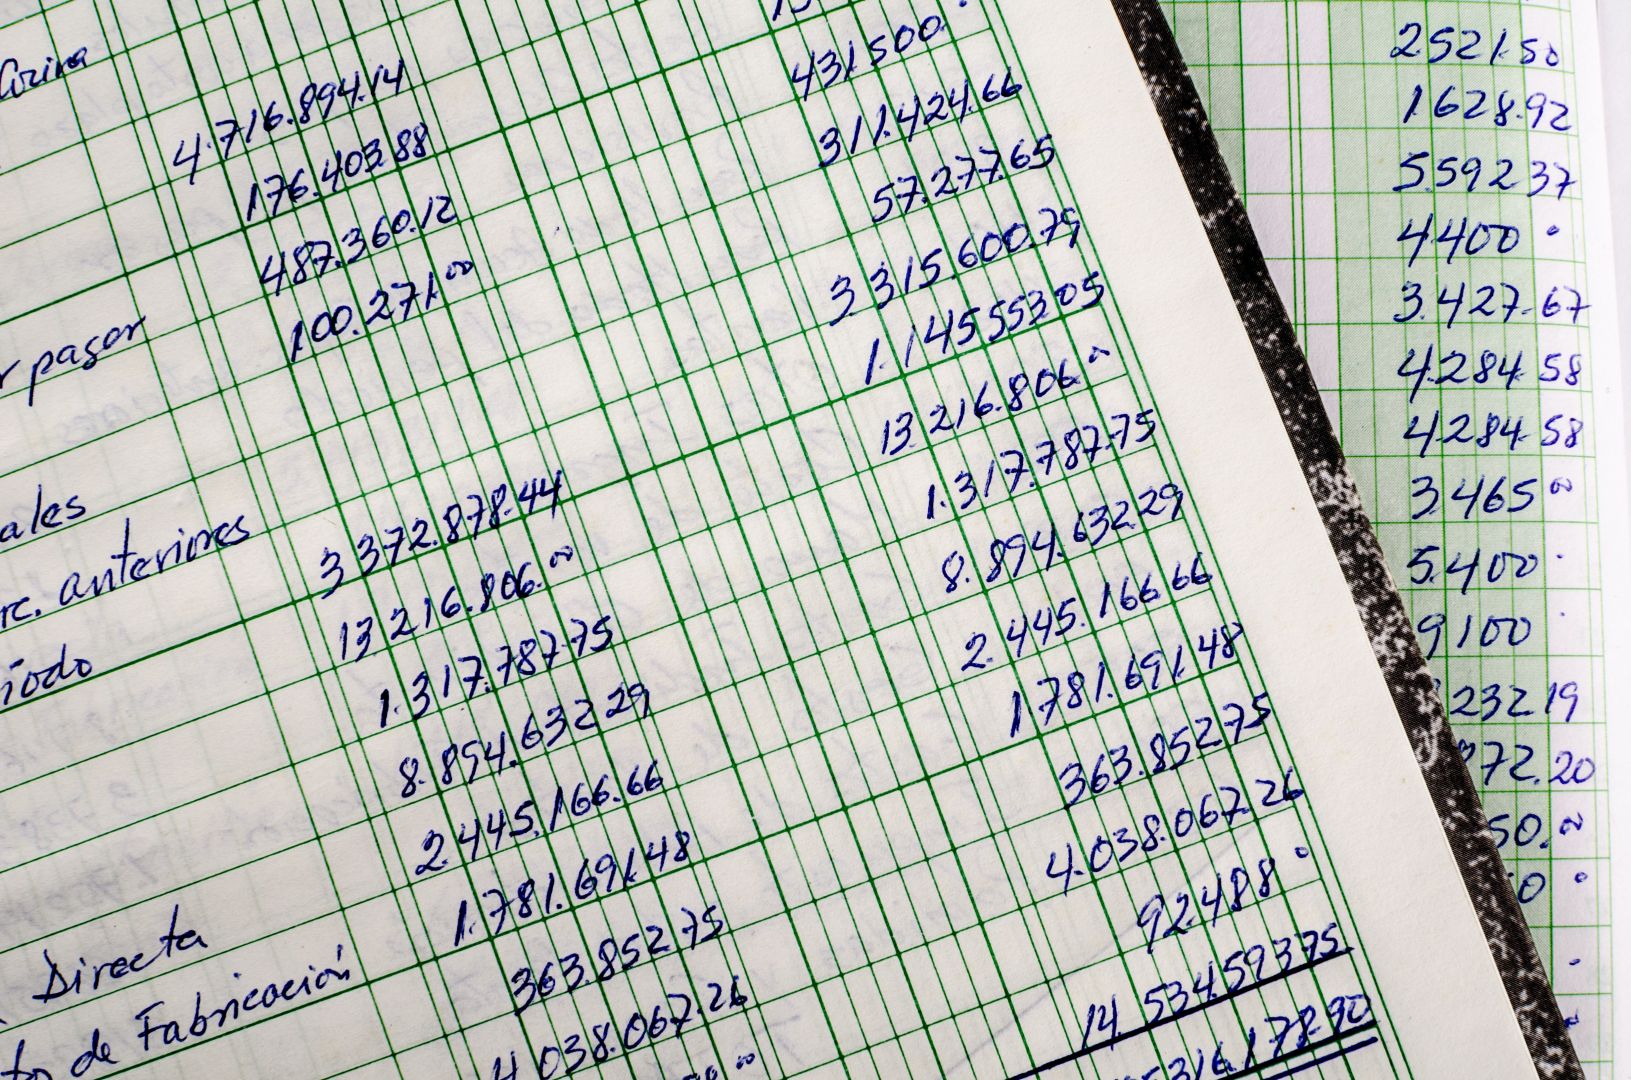 Cocina
4.716.894.14
176.403.88
487.360.12
r pagar 100.271.00
ales
anteriores 3 372.878.44
íodo 13 216.806.00
1.317.787.75
8.894.632 29
2.445.166.66
Directa 1.781.691.48
to de Fabricación 363.852 75
4 038.067.26
431 500.
311.424.66
57.277.65
3 315.600.79
1.145 553 05
13 216.806.00
1.317.787.75
8.894.632 29
2.445.166 66
1 781.691.48
363.852 75
4.038.067.26
92.488
14 534.593 75
316.178.90
2 521.50
1.628.92
5.592 37
4.400
3.427.67
4.284.58
4 284.58
3.465 00
5.400
9 100
232 19
72.20
50.00
0